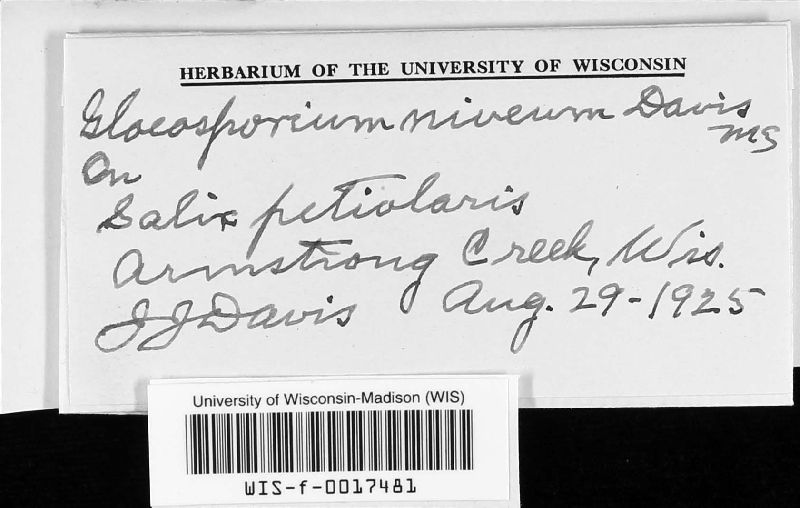 HERBARIUM OF THE UNIVERSITY OF WISCONSIN
Gloeosporium niveum Davis
ms
On
Salix petiolaris
Armstrong Creek, Wis.
JJ Davis Aug. 29-1925
University of Wisconsin-Madison (WIS)
WIS-f-0017481